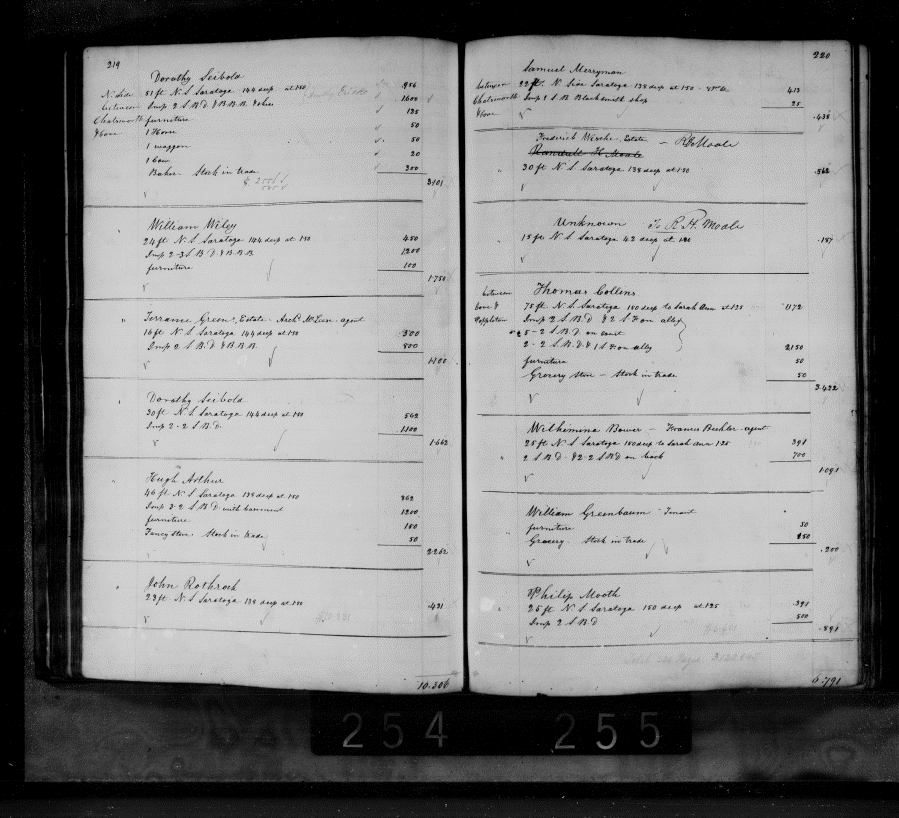 219
Dorothy Seibold
N. Side 51 ft N. S Saratoga 144 deep at 150 956
between Imp 2 S B D & B.B.B. & other 1600
Chatsworth furniture 125
& Cove 1 Horse 50
1 waggon 50
1 cow 20
Baker Stock in trade 300
3101
William Wiley
" 24 ft N. S Saratoga 144 deep at 150 450
Imp 2-3 S B D & B B B 1200
furniture 100
1.750
Terrance Green's Estate - Archd McLean agent
" 16 ft N. S Saratoga 144 deep at 150 300
Imp 2 S B D & B.B.B. 800
1.100
Dorothy Seibold
" 30 ft N. S Saratoga 144 deep at 150 562
Imp 2-2 S B D 1100
1.662
Hugh Arthur
" 46 ft N. S Saratoga 138 deep at 150 862
Imp 3-2 S B D with basement 1200
furniture 150
Fancy Store Stock in trade 50
2262
John Rothrock
" 23 ft N. S Saratoga 138 deep at 150 .431
10.306
220
Samuel Merryman
between 22 ft N Side Saratoga 138 deep at 150 413
Chatsworth Imp 1 S B Blacksmith shop 25
& Cove .438
Frederick Estate - R H Moale
Randall H Moale
" 30 ft N S Saratoga 138 deep at 150 .562
Unknown To R. H. Moale
" 15 ft N. S Saratoga 42 deep at 150 .157
between Thomas Collins
Cove & 75 ft N. S Saratoga 150 deep to Sarah Ann at 125 1172
Poppleton Imp 2 S B D & 2 S F on alley
5-2 S B D on court
2-2 S B D & 1 S F on alley 2150
furniture 50
Grocery Store - Stock in trade 50
3.422
Wilhimina Bower - Francis Beehler agent
" 25 ft N. S Saratoga 150 deep to Sarah Ann 125 391
2 S B D & 2-2 S B D on back 700
1.091
William Greenbaum Tenant
" furniture 50
Grocery Stock in trade 150
.200
Philip Mooth
" 25 ft N. S Saratoga 150 deep at 125 .391
Imp 2 S B D 500
.891
6.791
254 255